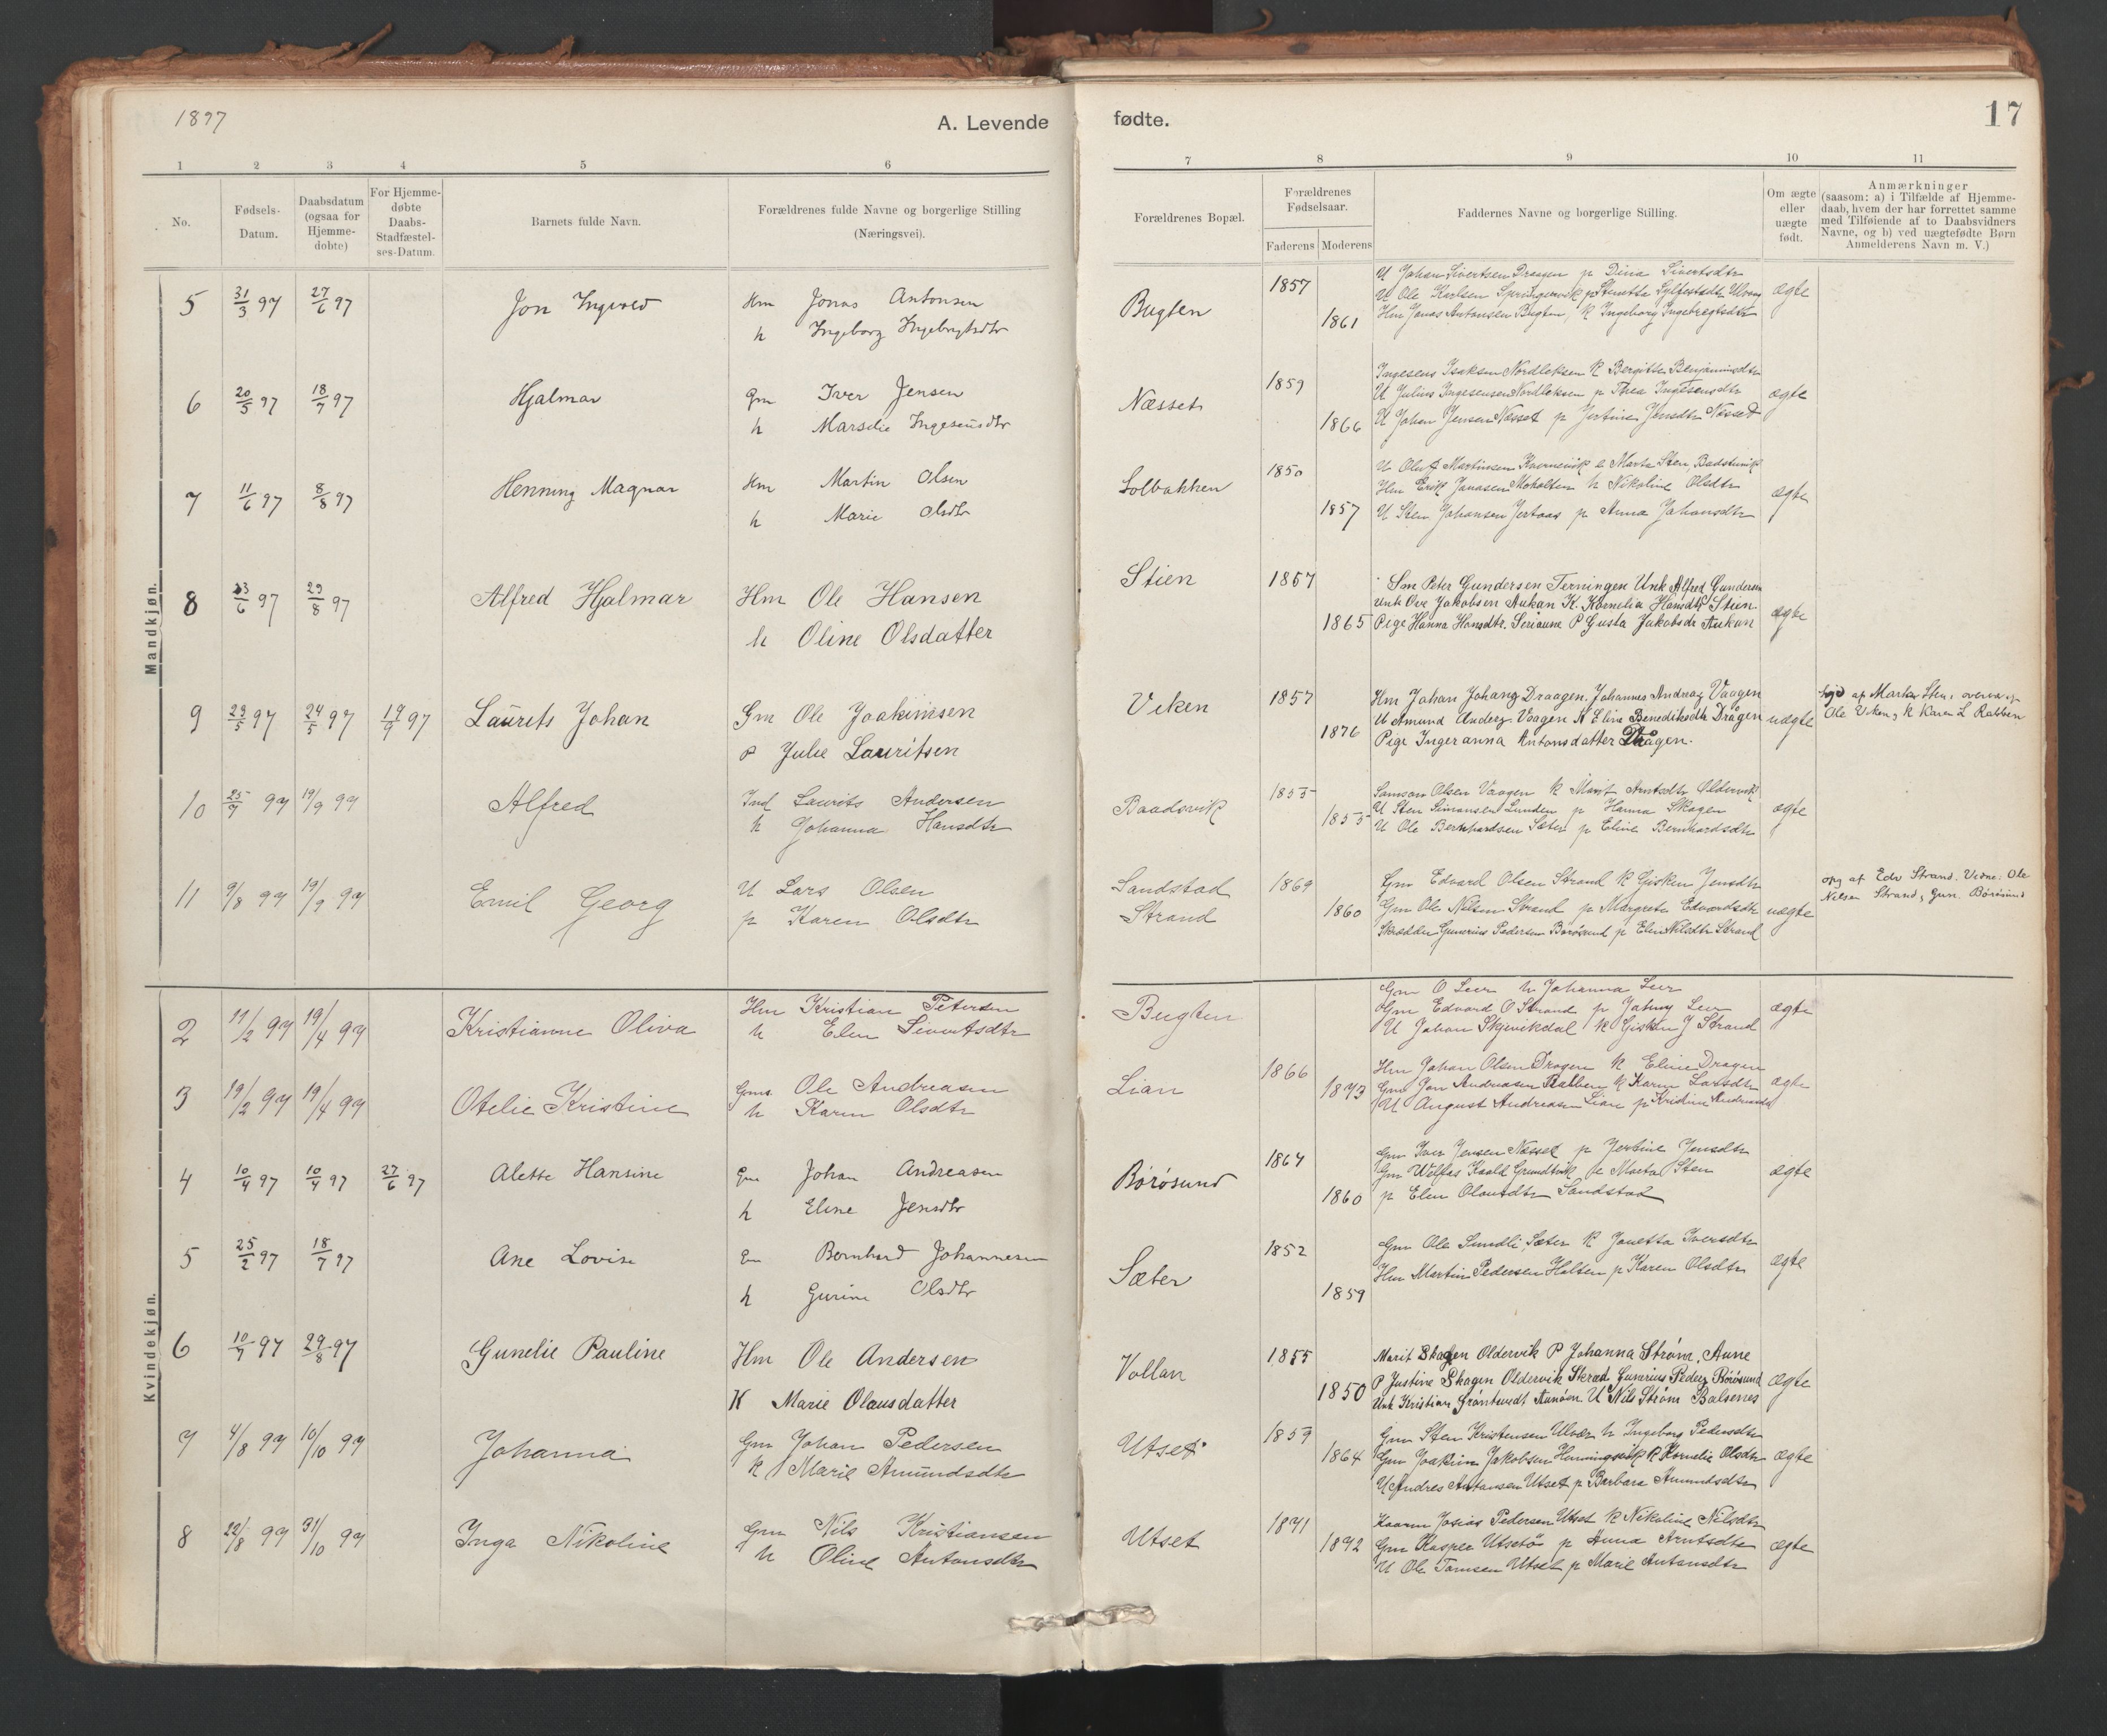 1897
A. Levende fødte.
17
1 2 3 4 5 6 7 8 9 10 11
No.
Fødsels-Datum.
Daabsdatum (ogsaa for Hjemme-dobte)
For Hjemme-døbte Daabs-Stadfæstel-ses-Datum.
Barnets fulde Navn.
Forældrenes fulde Navne og borgerlige Stilling
(Næringsvei).
Forældrenes Bopæl.
Forældrenes Fødselsaar.
Faderens Moderens
Faddernes Navne og borgerlige Stilling.
Om ægte eller uægte født.
Anmærkninger
(saasom: a) i Tilfælde af Hjemme-
daab, hvem der har forrettet samme
med Tilføiende af to Daabsvidners
Navne, og b) ved uægtefødte Børn
Anmelderens Navn m. V.)
Mandkjøn.
5 31/3 97 27/6 97 Jon Ingvold Hm Jonas Antonsen
h Ingeborg Ingebrigtsdtr
Bugten 1857 1861
U Johan Sivertsen Draagen p Dina Sivertsdtr
U Ole Karlsen Springervik p Stenetta Sylfestsdtr Ulvan
Hm Jonas Antonsen Bugten, K Ingeborg Ingebregtsdtr
ægte
6 20/5 97 18/7 97 Hjalmar Gm Iver Jensen
h Marselie Ingesensdtr
Næsset 1859 1866
Ingesens Isaksen Nordleksen K Bergitte Benjaminsdtr
U Julius Ingesensen Nordleksen p Thea Ingesensdtr
U Johan Jensen Næsset p Jertine Jensdtr Næsset
ægte
7 11/6 97 8/8 97 Henning Magnar Hm Martin Olsen
h Marie Olsdtr
Solbakken 1850 1857
U Oluf Martinsen Kvernevik e Marta Sten, Badstuvik
Hm Erik Janasen Moholten h Nikoline Olsdtr
U Sten Johansen Jertaas p Anna Johansdtr
ægte
8 23/6 97 29/8 97 Alfred Hjalmar Hm Ole Hansen
h Oline Olsdatter
Stien 1857 1865
Sm Peter Gundersen Terningen Unk Alfred Gundersen
Unk Ove Jakobsen Aukan K. Kornelia Hansdtr Stien
Pige Hanna Hansdtr. Serianne P Gusta Jakobsdr Aukan
ægte
9 23/5 97 24/5 97 19/9 97 Laurits Johan Gm Ole Joakimsen
P Julie Lauritsen
Veken 1857 1876
Hm Johan Johans Draagen. Johannes Andreas Vaagen
U Amund Anders Vaagen K Eline Benediktsdtr Drågen
Pige Ingeranna Antonsdatter Vågen.
uægte
af Marta Sten,
Ole Veken, K Karen L Rabben
10 25/7 97 19/9 97 Alfred Ind Laurits Andersen
h Johanna Hansdtr
Baadsvik 1855 1855
Samson Olsen Vaagen K Marit Arntsdtr Oldervik
U Sten Simonsen Lunden p Hanna Skagen
U Ole Bernhardsen Sæter p Eline Bernhardsdtr
ægte
11 9/8 97 19/9 97 Emil Georg U Lars Olsen
p Karen Olsdtr
Sandstad
Strand 1869 1860
Gm Edvard Olsen Strand K Gisken Jensdtr
Gm Ole Nilsen Strand p Margrete Edvardsdtr
Skrædder Gunerius Pedersen Børøsund p Elen Nilsdtr Strand
uægte
opg af Edv Strand. Vidne: Ole
Nilsen Strand, Gun. Børøsund
Kvindekjøn.
2 11/2 97 19/4 97 Kristianne Oliva Hm Kristian Petersen
h Elen Sivertsdtr
Bugten
Gm O Leer h Johanna Leer
Gm Edvard O Strand p Leer
U Johan Skjevikdal K Gisken J Strand
ægte
3 19/2 97 19/4 97 Otelie Kristine Gms. Ole Andreasen
h Karen Olsdtr
Lian 1866 1873
Hm Johan Olsen Dragen K Eline Dragen
Gm Jon Andreasen Rabben K Karen Larsdtr
U August Andreasen Lian p Kristine Andreasdtr
ægte
4 10/4 97 10/4 97 27/6 97 Alette Hansine Gm Johan Andreasen
h Eline Jensdtr
Børøsund 1864 1860
Gm Iver Jensen Næsset p Jertine Jensdtr
Gm Welfas Kaald Grundtvik e Marta Sten
p Elen Olausdtr Sandstad
ægte
5 25/2 97 18/7 97 Ane Lovise Gm Bernhard Johannesen
h Gurine Olsdtr
Sæter 1852 1859
Gm Ole Sundli Sæter K Janetta Iversdtr
Hm Martin Pedersen Holten p Karen Olsdtr
ægte
6 10/7 97 29/8 97 Gunelie Pauline Hm Ole Andersen
K Marie Olausdatter
Vollan 1855 1850
Marit Skagen Oldervik P Johanna Strøm, Aune
P Justine Skagen Oldervik Skræd Gunerius Peders Børøsund
Unk Kristian Grøntvedt Aunøen U Nils Strøm Balsenes
ægte
7 4/8 97 10/10 97 Johanna Gm Johan Pedersen
K Marie Amundsdtr
Utset 1859 1864
Gm Sten Kristensen Ulvær h Ingeborg Pedersdtr
Gm Joakim Jakobsen Henningsvik K Kornelie Olsdtr
U Andres Antonsen Utset p Barbara Amundsdtr
ægte
8 22/8 97 31/10 97 Inga Nikoline Gm Nils Kristiansen
h Oline Antonsdtr
Utset 1871 1872
Kaarm Josias Pedersen Utset K Nikoline Nilsdtr
Gm Kasper Utsetø p Anna Arntsdtr
U Ole Tomsen Utset p Marie Antonsdtr
ægte